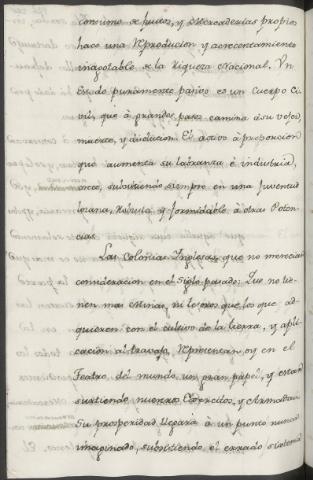 Consumo de frutos, y Mercaderias propios
hace una Reproducion, y acrecentamiento
inagotable de la Riqueza Nacional. Vn
Estado puramente pasivo es un Cuerpo Ci-
vil, que à grandes pasos camina à su vejez,
muerte, y disolucion. El activo à proporcion
que aumenta su labranza è industria,
crece, subsistiendo siempre en una Juventud
lozana, Robusta y formidable à otras Poten-
cias.
Las Colonias Inglesas, que no merecian
consideracion en el siglo pasado: Que no tie-
nen mas Minas, ni tesoros que los que ad-
quieren con el cultivo de la tierra, y apli-
cacion al travajo, Representan oy en el
Teatro del mundo un gran papel, y estan
surtiendo nuestros Exercitos, y Armadas.
Su prosperidad llegará à un punto nunca
imaginado, subsistiendo el errado sistema